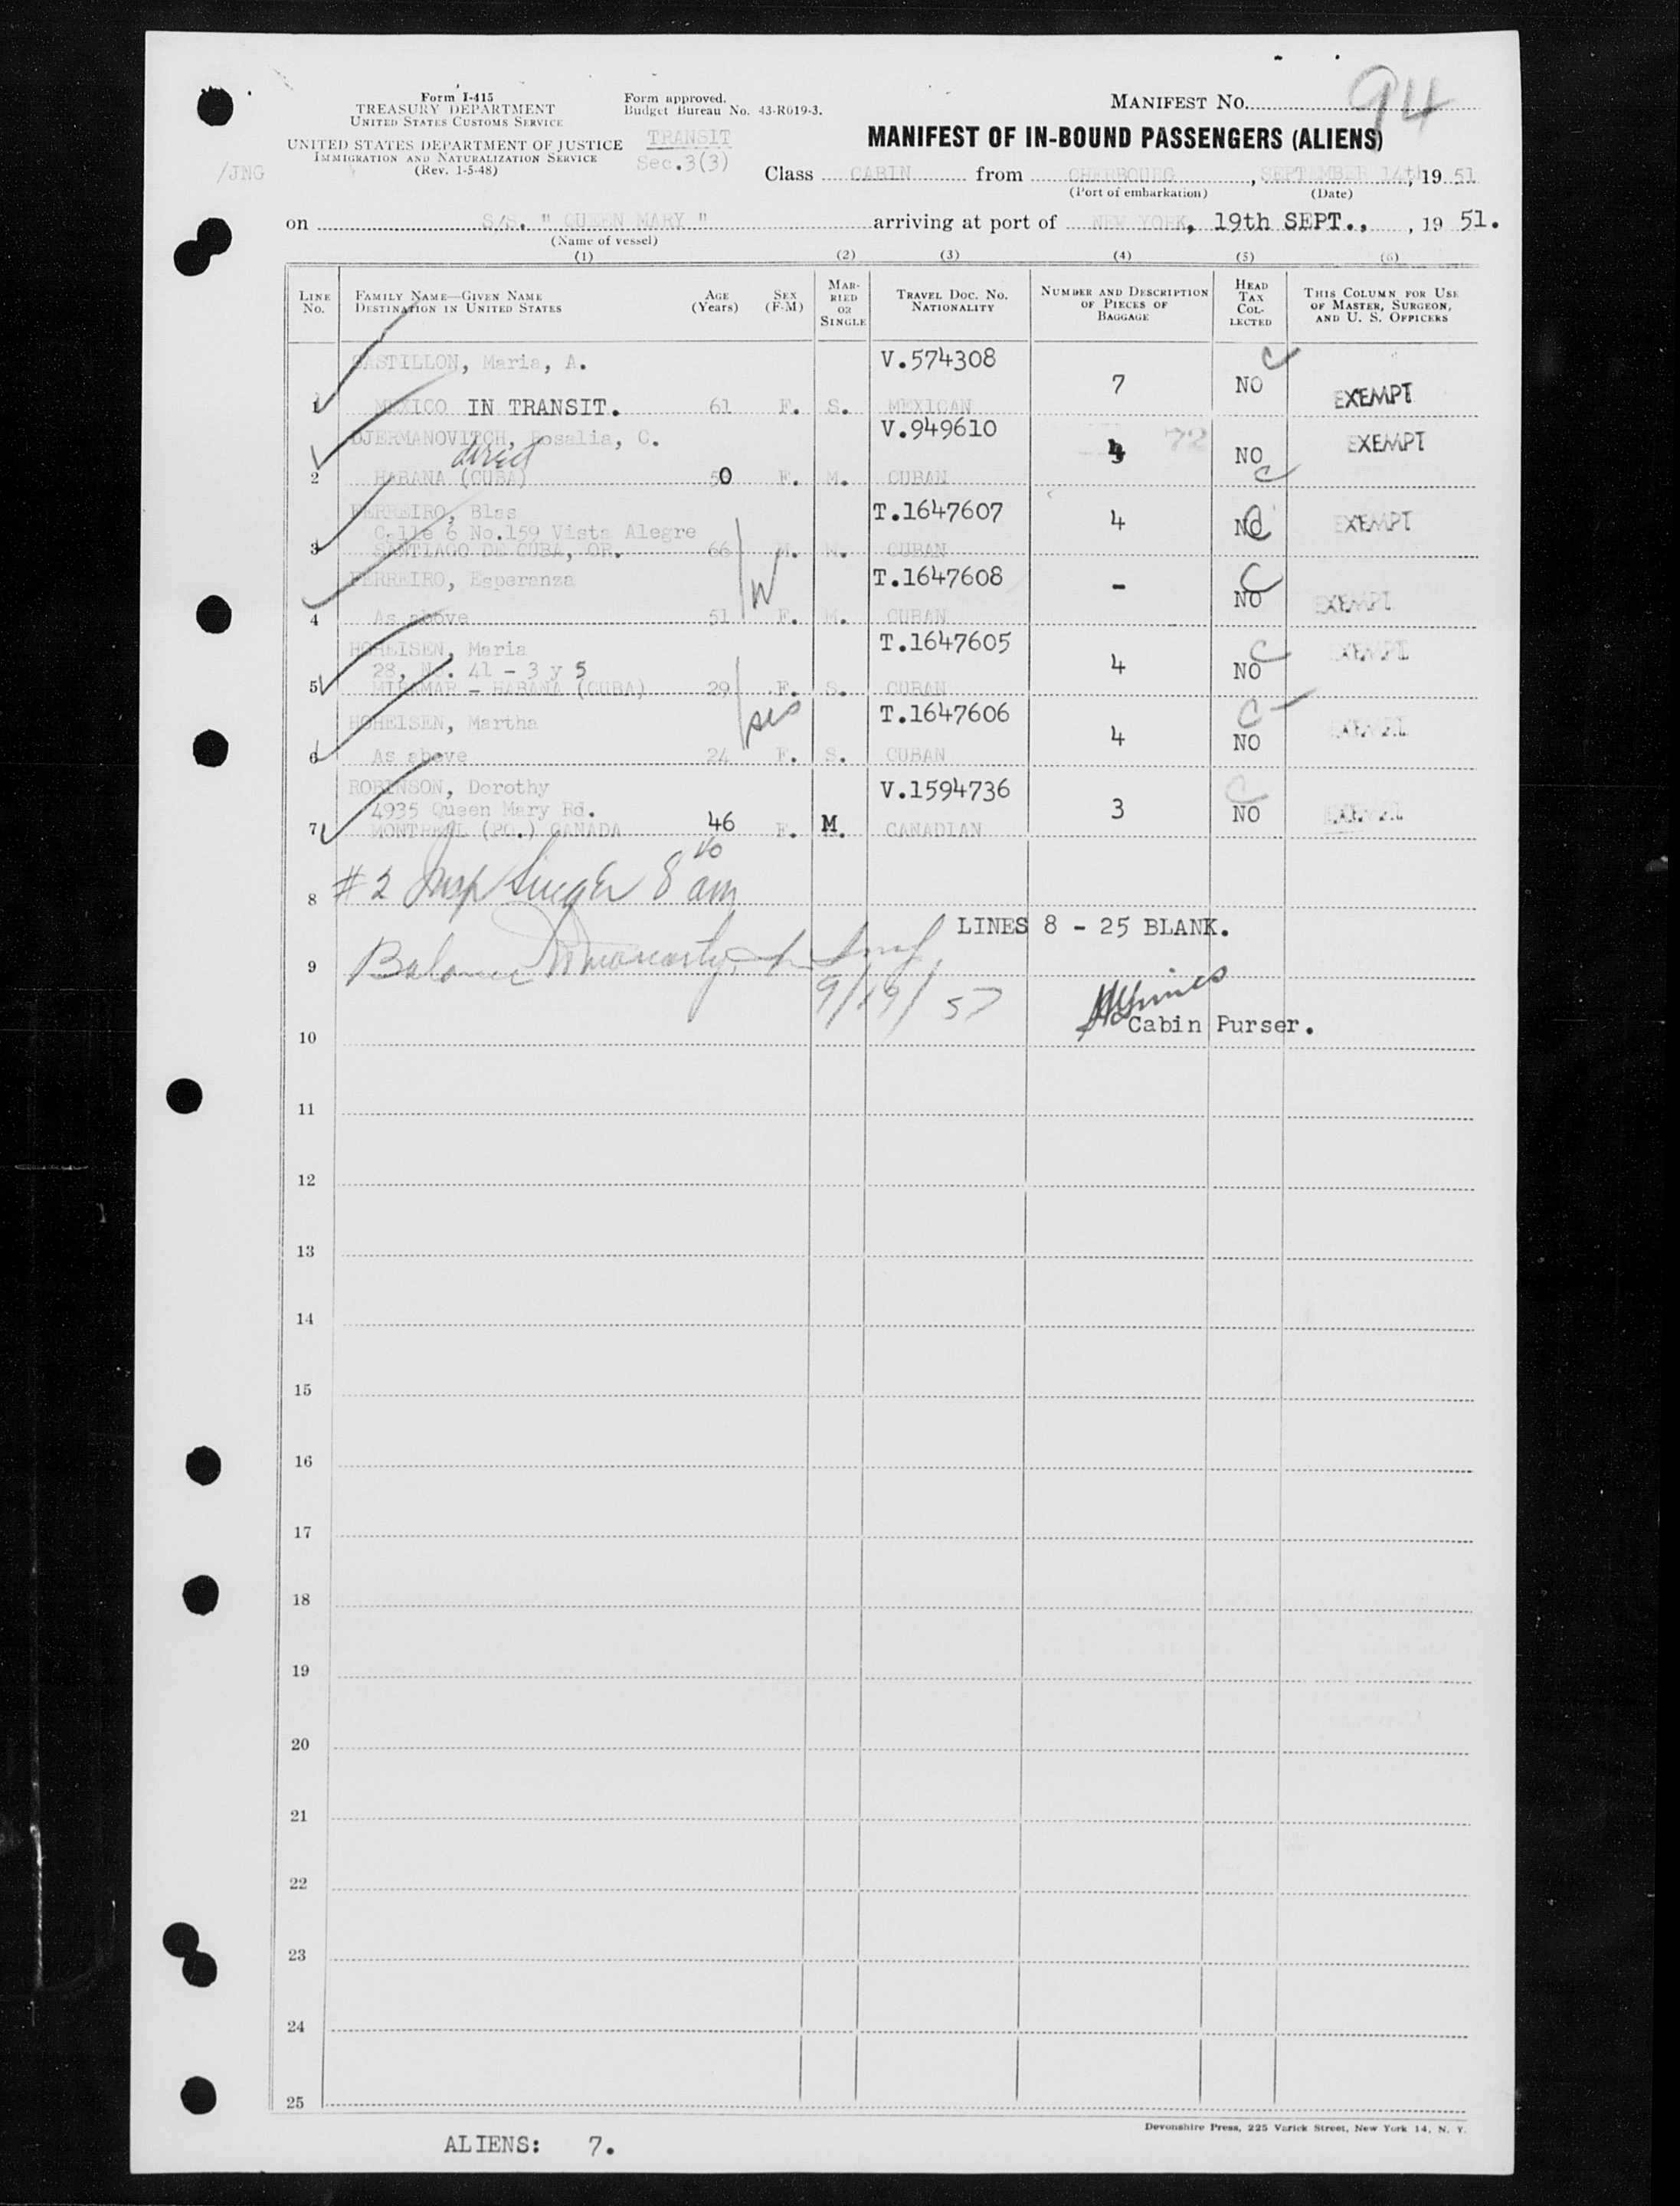 94
Form I-415
TREASURY DEPARTMENT
UNITED STATES CUSTOMS SERVICE
UNITED STATES DEPARTMENT OF JUSTICE
IMMIGRATION AND NATURALIZATION SERVICE
(Rev. 1-5-48)
/JNG
Form approved.
Budget Bureau No. 43-R019-3.
TRANSIT
Sec.3(3)
MANIFEST NO.
MANIFEST OF IN-BOUND PASSENGERS (ALIENS)
Class CABIN from CHERBOURG, SEPTEMBER 14th, 19 51
(Port of embarkation) (Date)
on S/S. " QUEEN MARY " arriving at port of NEW YORK, 19th SEPT., , 19 51.
(Name of vessel)
(1) (2) (3) (4) (5) (6)
LINE No. FAMILY NAME—GIVEN NAME DESTINATION IN UNITED STATES AGE (Years) SEX (F-M) MARRIED OR SINGLE TRAVEL DOC. NO. NATIONALITY NUMBER AND DESCRIPTION OF PIECES OF BAGGAGE HEAD TAX COLLECTED THIS COLUMN FOR USE OF MASTER, SURGEON, AND U. S. OFFICERS
CASTILLON, Maria, A. V.574308 C
7 NO EXEMPT
1 MEXICO IN TRANSIT. 61 F. S. MEXICAN
DJERMANOVITCH, Rosalia, C. V.949610 72 EXEMPT
direct NO
2 HABANA (CUBA) 50 F. M. CUBAN C
FERREIRO, Blas T.1647607 4 NO C EXEMPT
Calle 6 No.159 Vista Alegre
3 SANTIAGO DE CUBA, OR. 66 M. M. CUBAN
FERREIRO, Esperanza T.1647608 - C
W NO EXEMPT
4 As above 51 F. M. CUBAN
HOHEISEN, Maria T.1647605 C EXEMPT
28, No. 41 - 3 y 5 4 NO
5 MIRAMAR - HABANA (CUBA) 29 F. S. CUBAN
HOHEISEN, Martha T.1647606 C EXEMPT
sis 4 NO
6 As above 24 F. S. CUBAN
ROBINSON, Dorothy V.1594736 C
4935 Queen Mary Rd. 3 NO EXEMPT
7 MONTREAL (PQ.) CANADA 46 F. M. CANADIAN
#2 Insp Singer 8 am
8
LINES 8 - 25 BLANK.
Balance
9
9/19/51
Cabin Purser.
10
11
12
13
14
15
16
17
18
19
20
21
22
23
24
25
Devonshire Press, 225 Varick Street, New York 14, N. Y.
ALIENS: 7.